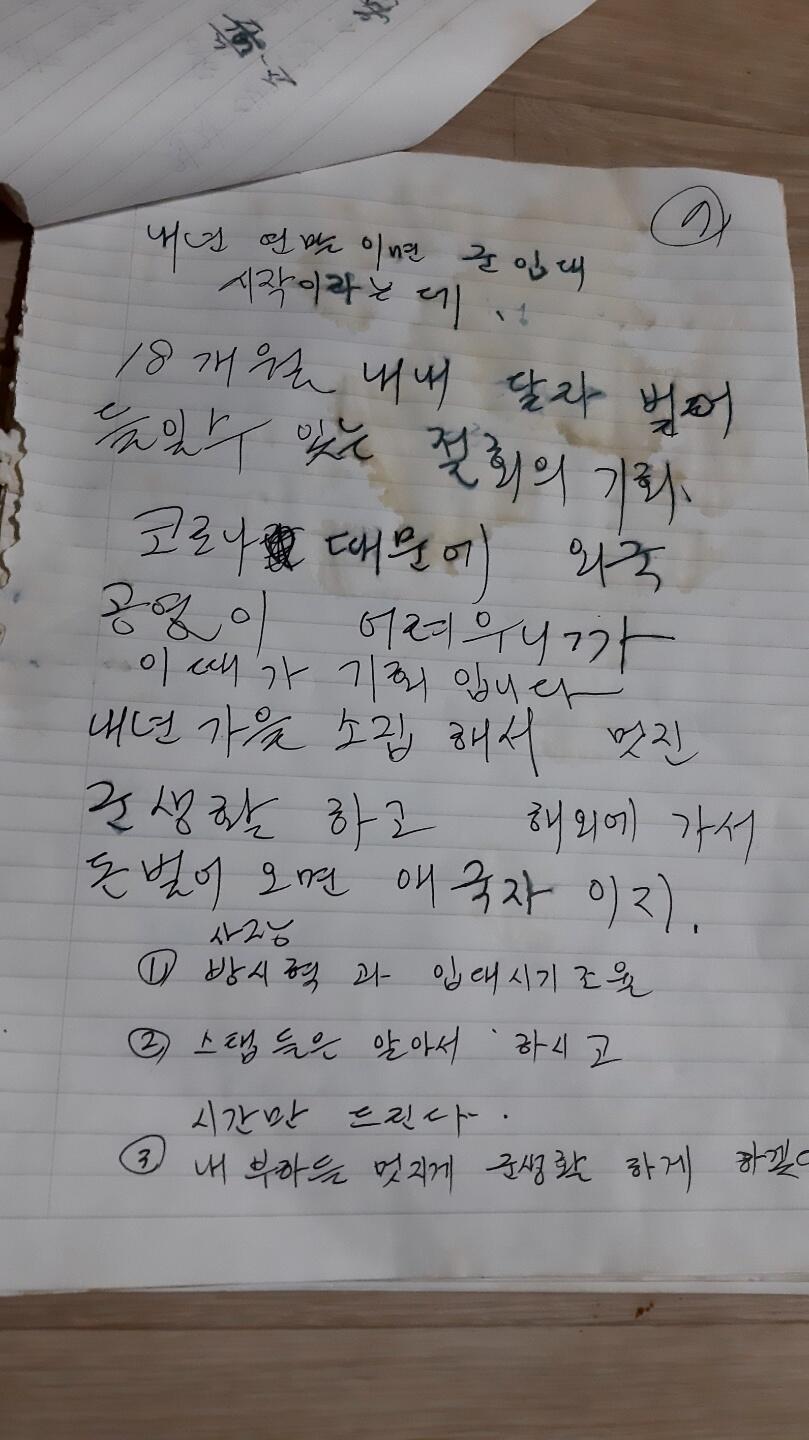 내년 연말이면 군입대
시작이라는데
18개월 내내 달라 벌어
들일수 있는 절회의 기회.
코로나 때문에 외국
공영이 어려우니까
이때가 기회입니다
내년 가을 소집해서 멋진
군생활 하고 해외에 가서
돈벌어 오면 애국자이지.
① 방시혁과 입대시기조율
② 스탭들은 알아서 하시고
시간만 드린다.
③ 내 부하들 멋지게 군생활 하게